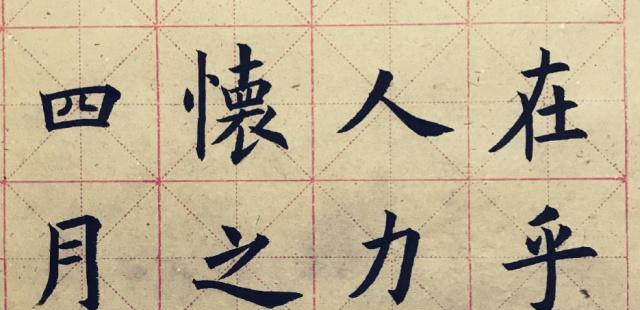 在乎
人力
懐之
四月